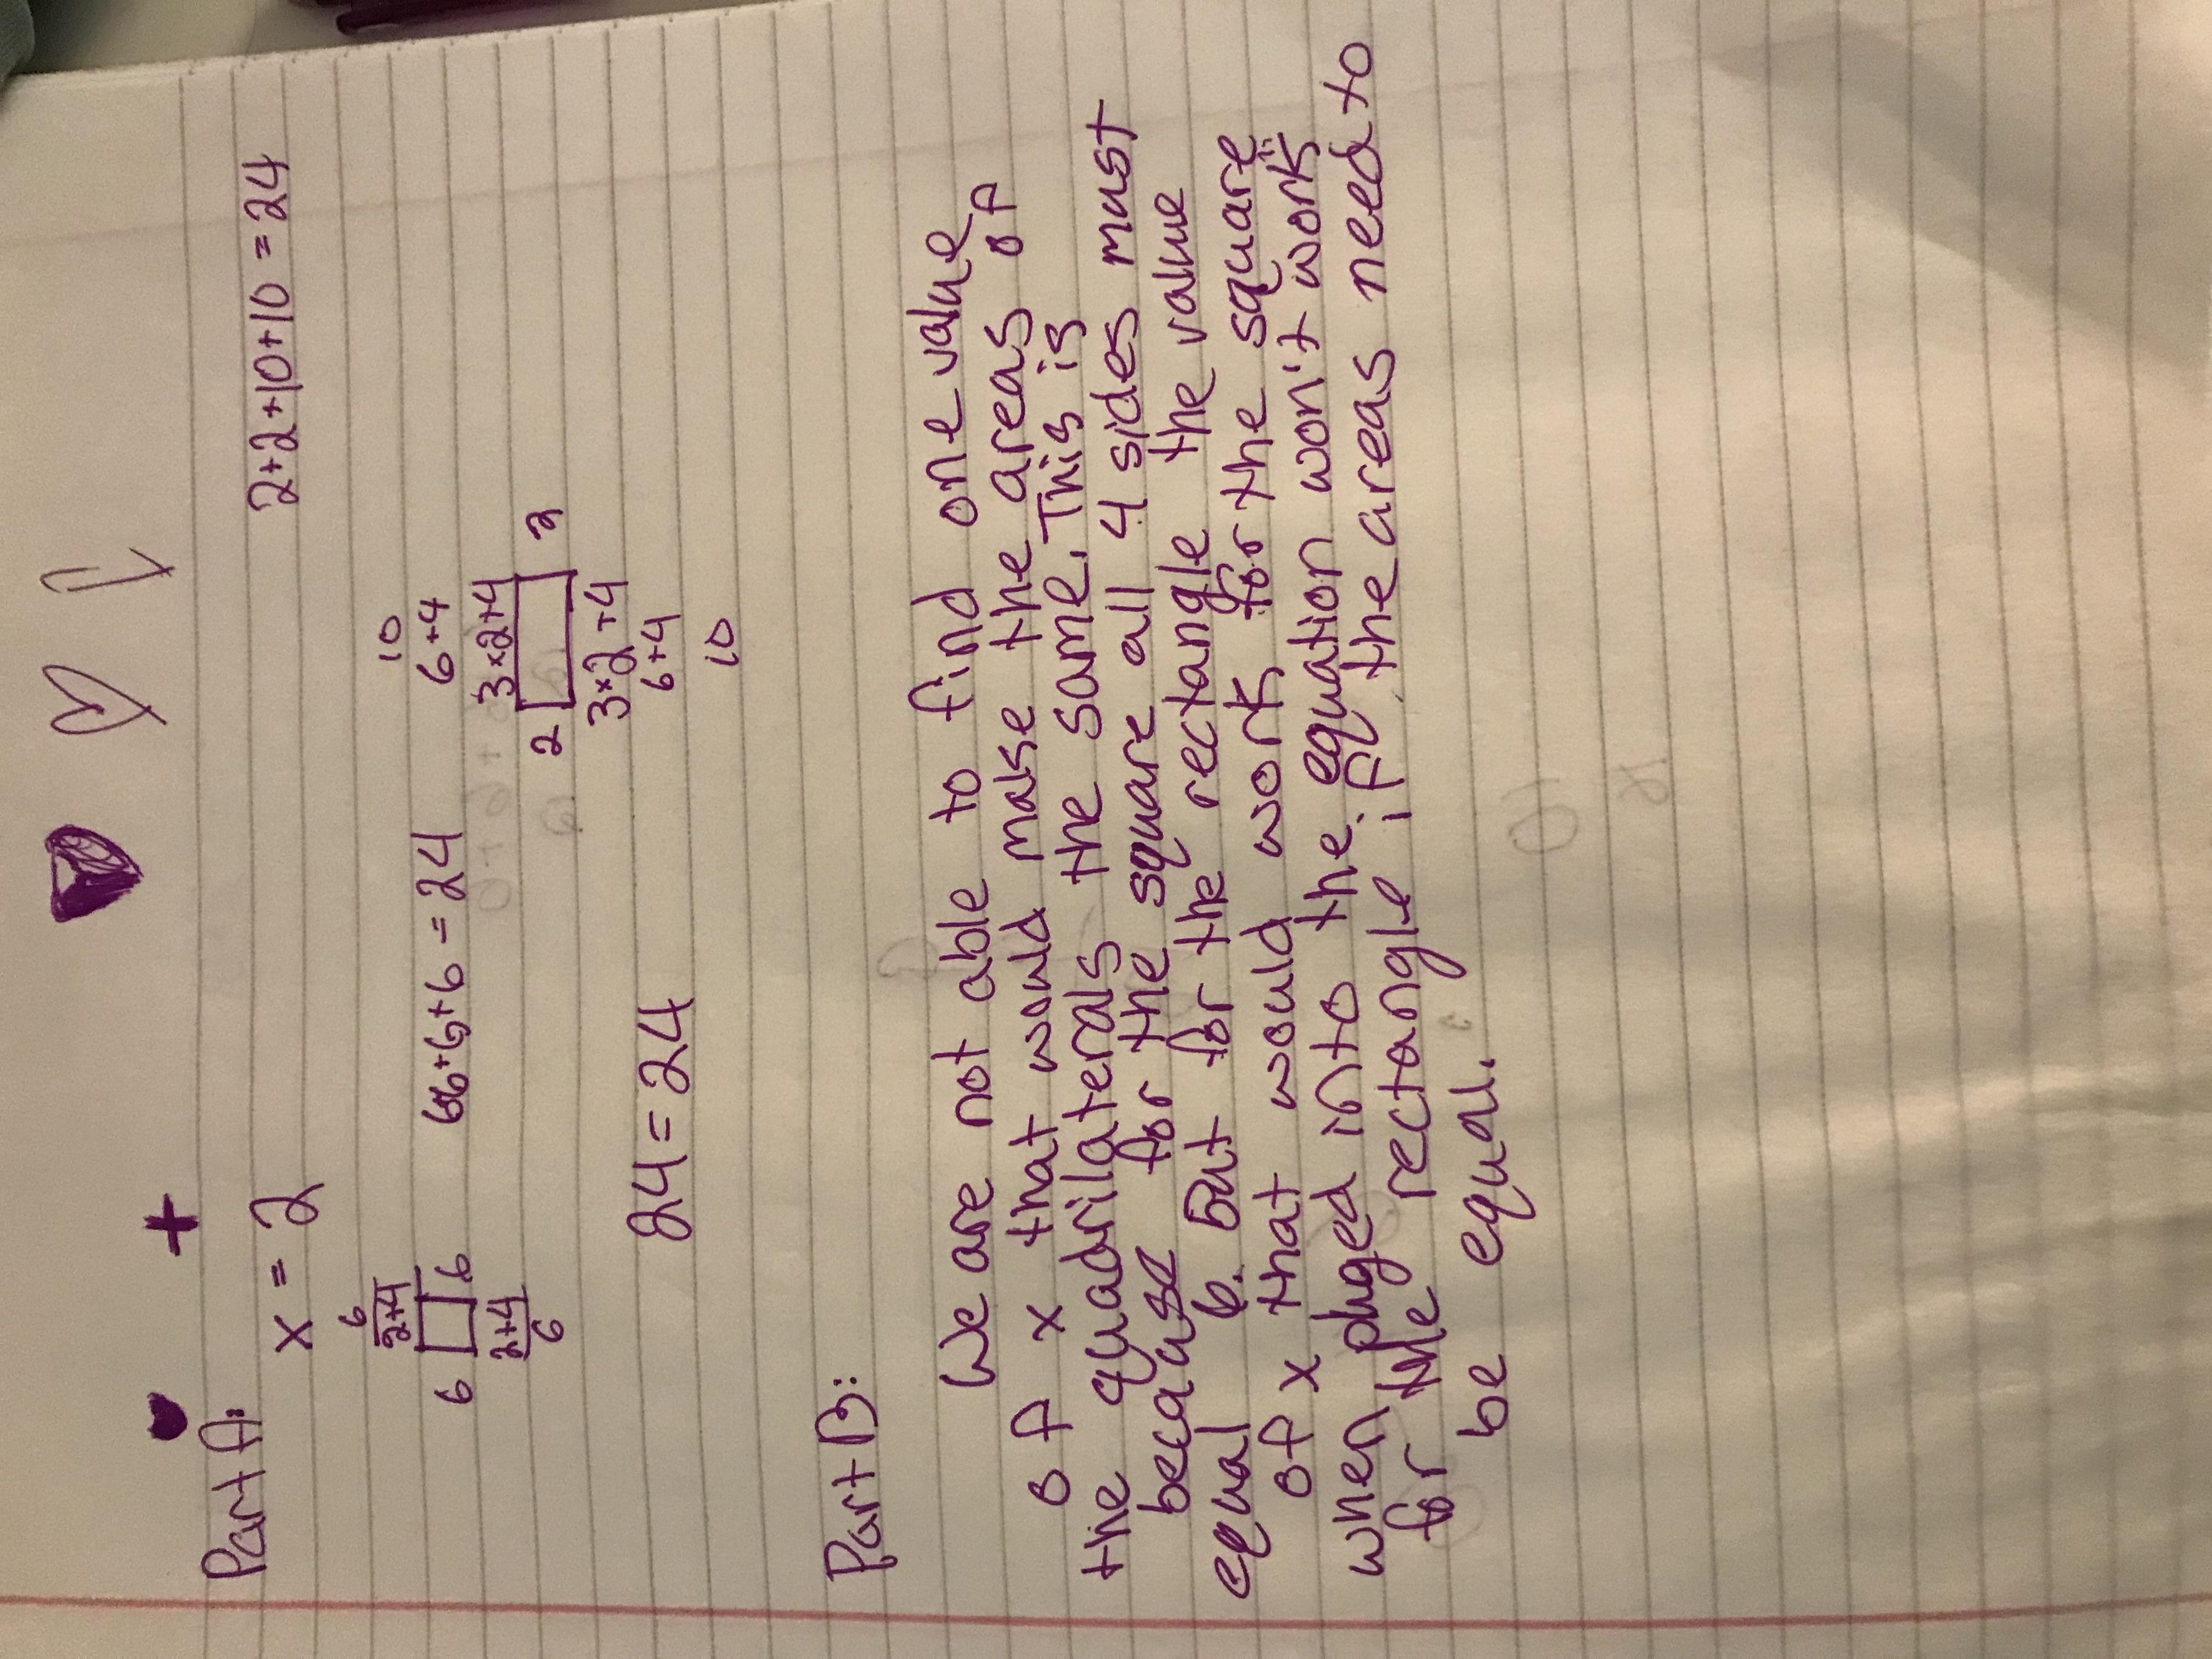 Part A:
x = 2
2+2+10+10=24
6
2+4
6 6
2+4
6
6+6+6=24
10
6+4
3×2+4
2 2
3×2+4
6+4
10
24=24
Part B:
We are not able to find one value
of x that would make the areas of
the quadrilaterals the same. This is
because for the square all 4 sides must
equal 6. But for the rectangle the value
of x that would work for the square
when pluged into the equation won't work
for the rectangle if the areas need to
be equal.